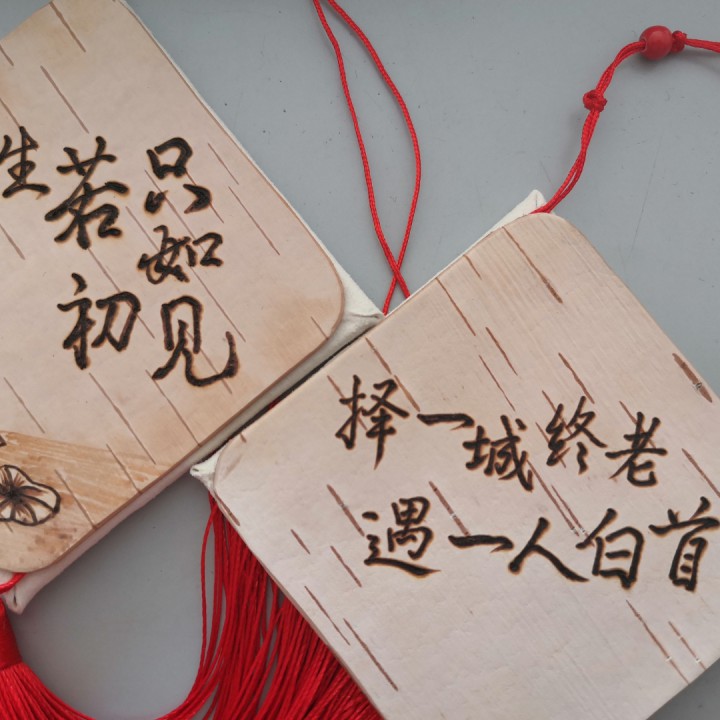 生若只
如
初见
择一城终老
遇一人白首